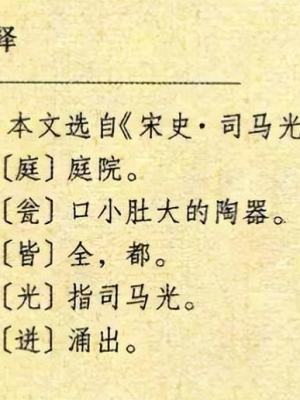 释
本文选自《宋史·司马光
〔庭〕庭院。
〔瓮〕口小肚大的陶器。
〔皆〕全，都。
〔光〕指司马光。
〔迸〕涌出。